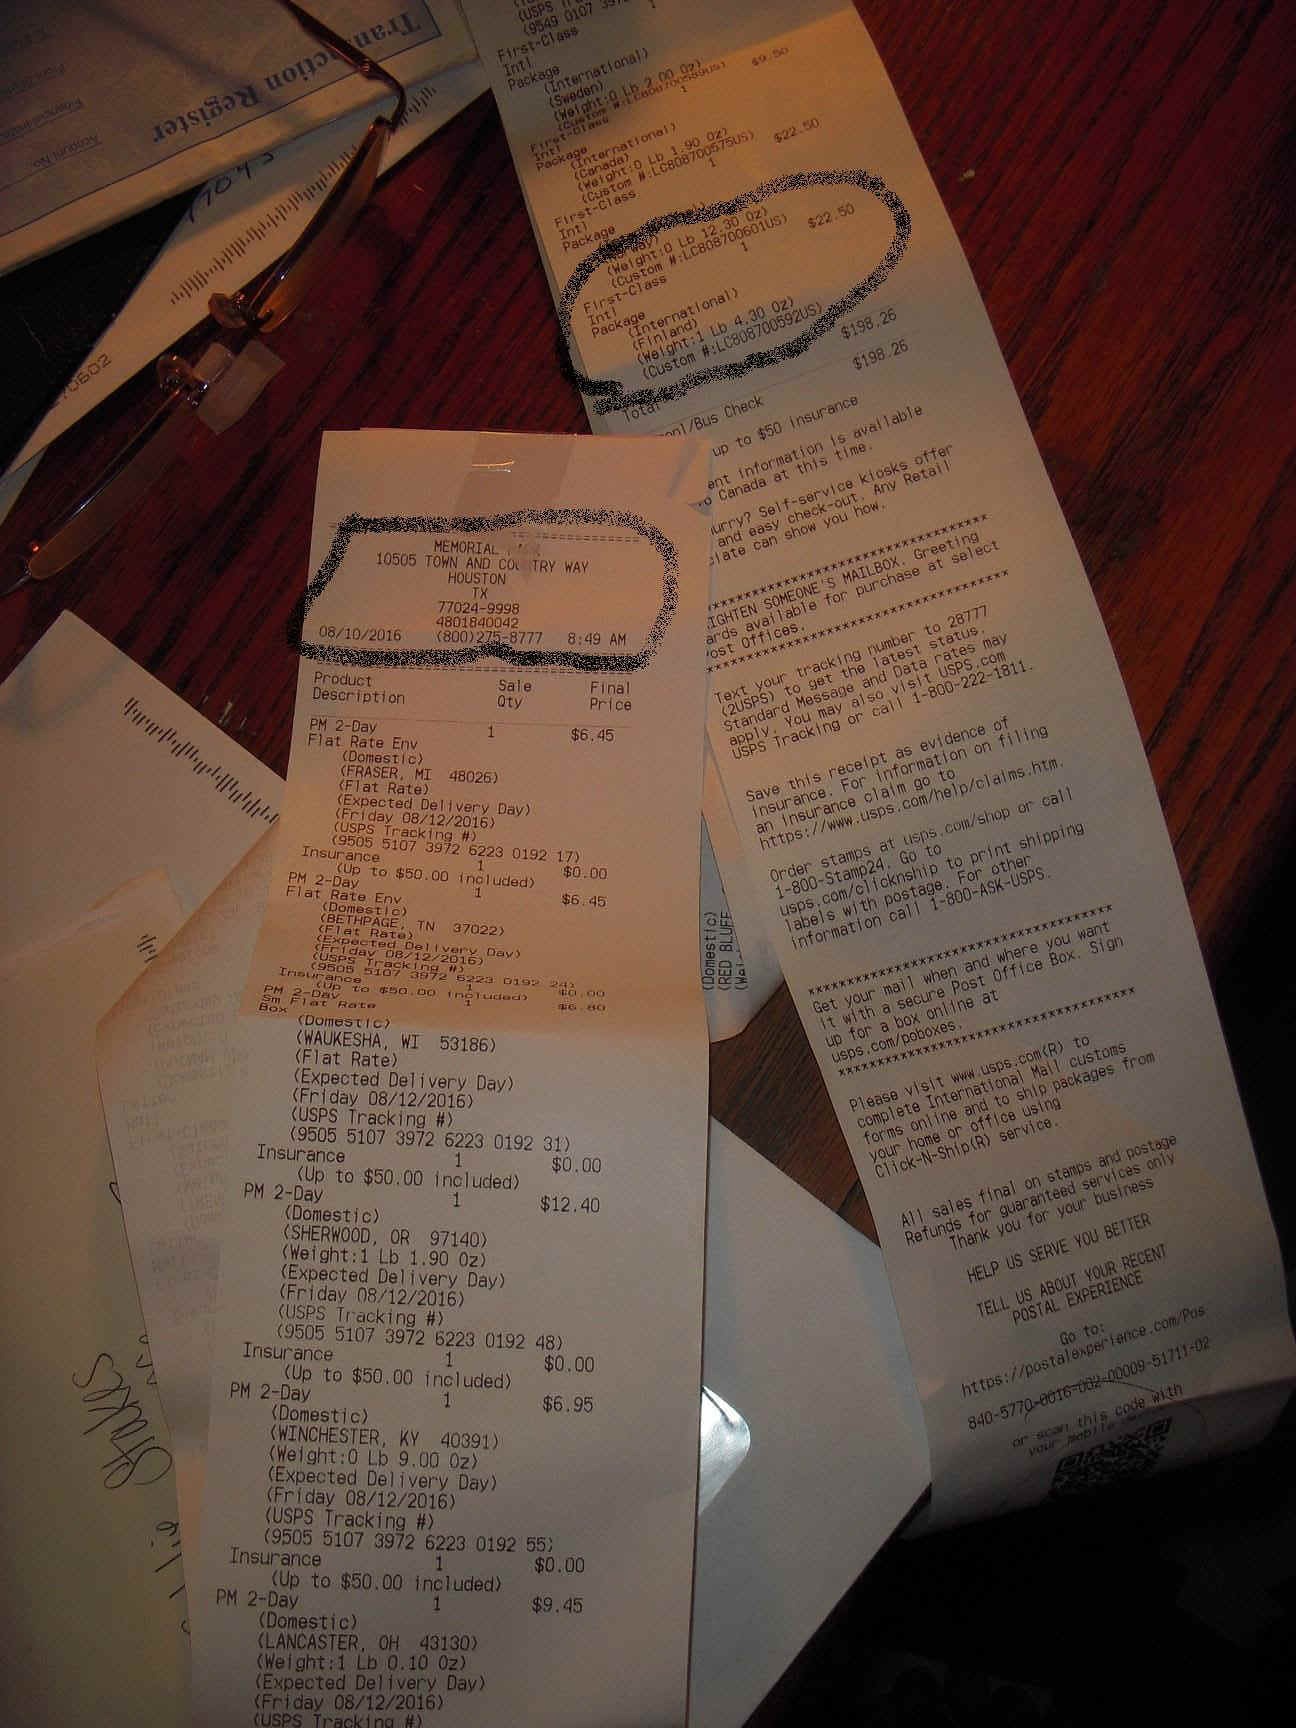 Transaction Register
Account No.
70602
(9549 0107 3972
First-Class 1
Intl
Package
(International)
(Sweden)
(Weight:0 Lb 2.00 Oz)
(Custom #:LC808700589US)
First-Class 1 $9.50
Intl
Package
(International)
(Canada)
(Weight:0 Lb 1.90 Oz)
(Custom #:LC808700575US)
First-Class 1 $22.50
Intl
Package
(Weight:0 Lb 12.30 Oz)
(Custom #:LC808700601US)
First-Class 1 $22.50
Intl
Package
(International)
(Finland)
(Weight:1 Lb 4.30 Oz)
(Custom #:LC808700592US)
$198.26
Total
$198.26
/Bus Check
up to $50 insurance
information is available
Canada at this time.
Self-service kiosks offer
and easy check-out. Any Retail
can show you how.
SOMEONE'S MAILBOX. Greeting
available for purchase at select
Offices.
Text your tracking number to 28777
(2USPS) to get the latest status.
Standard Message and Data rates may
apply. You may also visit USPS.com
USPS Tracking or call 1-800-222-1811.
Save this receipt as evidence of
insurance. For information on filing
an insurance claim go to
https://www.usps.com/help/claims.htm.
Order stamps at usps.com/shop or call
1-800-Stamp24. Go to
usps.com/clicknship to print shipping
labels with postage. For other
information call 1-800-ASK-USPS.
Get your mail when and where you want
it with a secure Post Office Box. Sign
up for a box online at
usps.com/poboxes.
Please visit www.usps.com(R) to
complete International Mail customs
forms online and to ship packages from
your home or office using
Click-N-Ship(R) service.
All sales final on stamps and postage
Refunds for guaranteed services only
Thank you for your business
HELP US SERVE YOU BETTER
TELL US ABOUT YOUR RECENT
POSTAL EXPERIENCE
Go to:
https://postalexperience.com/Pos
840-5770-0016-002-00009-51711-02
or scan this code with
your mobile
MEMORIAL
10505 TOWN AND COUNTRY WAY
HOUSTON
TX
77024-9998
4801840042
08/10/2016 (800)275-8777 8:49 AM
Product Sale Final
Description Qty Price
PM 2-Day 1 $6.45
Flat Rate Env
(Domestic)
(FRASER, MI 48026)
(Flat Rate)
(Expected Delivery Day)
(Friday 08/12/2016)
(USPS Tracking #)
(9505 5107 3972 6223 0192 17)
Insurance 1 $0.00
(Up to $50.00 included)
PM 2-Day 1 $6.45
Flat Rate Env
(Domestic)
(BETHPAGE, TN 37022)
(Flat Rate)
(Expected Delivery Day)
(Friday 08/12/2016)
(USPS Tracking #)
(9505 5107 3972 6223 0192 24)
Insurance 1 $0.00
(Up to $50.00 included)
PM 2-Day 1 $6.80
Sm Flat Rate
Box
(Domestic)
(WAUKESHA, WI 53186)
(Flat Rate)
(Expected Delivery Day)
(Friday 08/12/2016)
(USPS Tracking #)
(9505 5107 3972 6223 0192 31)
Insurance 1 $0.00
(Up to $50.00 included)
PM 2-Day 1 $12.40
(Domestic)
(SHERWOOD, OR 97140)
(Weight:1 Lb 1.90 Oz)
(Expected Delivery Day)
(Friday 08/12/2016)
(USPS Tracking #)
(9505 5107 3972 6223 0192 48)
Insurance 1 $0.00
(Up to $50.00 included)
PM 2-Day 1 $6.95
(Domestic)
(WINCHESTER, KY 40391)
(Weight:0 Lb 9.00 Oz)
(Expected Delivery Day)
(Friday 08/12/2016)
(USPS Tracking #)
(9505 5107 3972 6223 0192 55)
Insurance 1 $0.00
(Up to $50.00 included)
PM 2-Day 1 $9.45
(Domestic)
(LANCASTER, OH 43130)
(Weight:1 Lb 0.10 Oz)
(Expected Delivery Day)
(Friday 08/12/2016)
(USPS Tracking #)
(Domestic)
(RED BLUFF